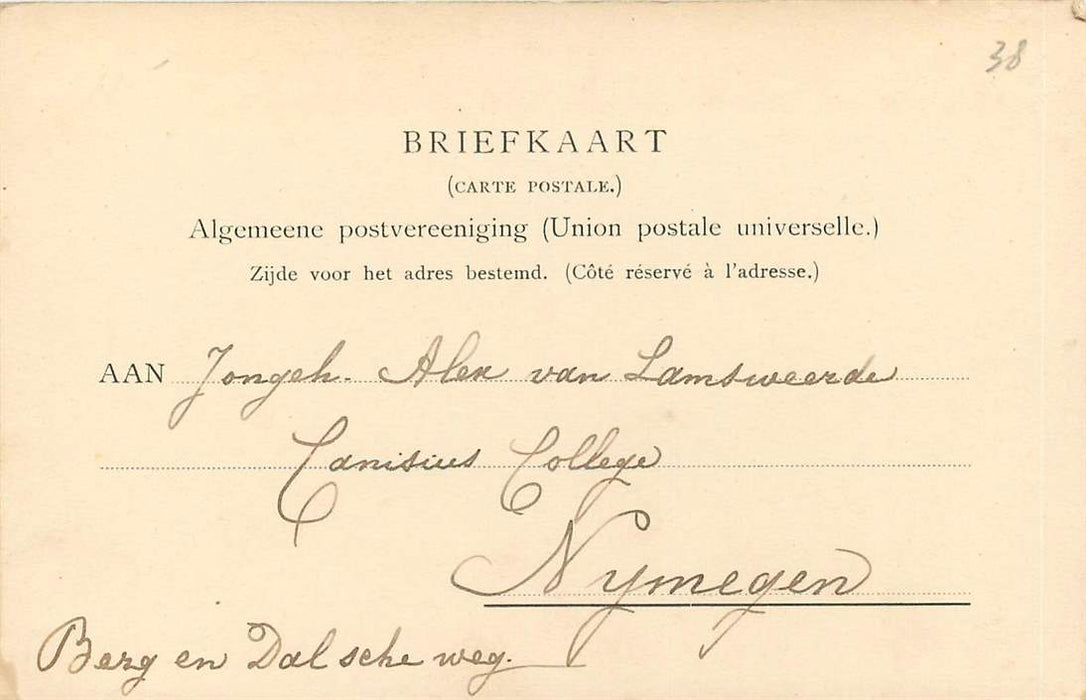 38
BRIEFKAART
(CARTE POSTALE.)
Algemeene postvereeniging (Union postale universelle.)
Zijde voor het adres bestemd. (Côté réservé à l'adresse.)
AAN Jongeh. Alex van Lamsweerde
Canisius College
Nymegen
Berg en Dalsche weg.